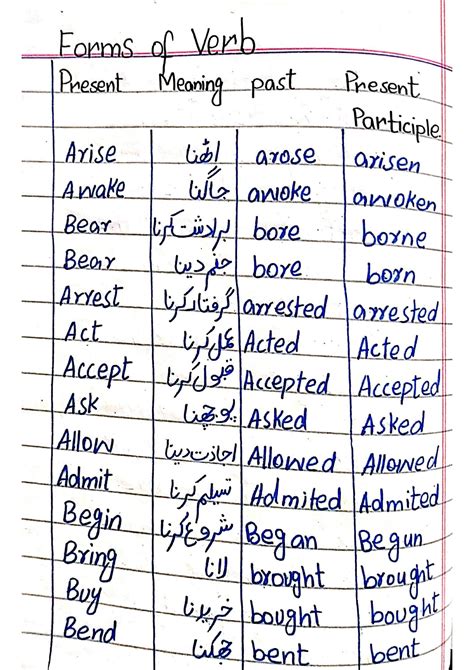 Forms of Verb
Present Meaning past Present Participle
Arise اٹھنا arose arisen
Awake جاگنا awoke awoken
Bear برادشت کرنا bore borne
Bear جنم دینا bore born
Arrest گرفتار کرنا arrested arrested
Act عمل کرنا Acted Acted
Accept قبول کرنا Accepted Accepted
Ask پوچھنا Asked Asked
Allow اجازت دینا Allowed Allowed
Admit تسلیم کرنا Admited Admited
Begin شروع کرنا Began Begun
Bring لانا brought brought
Buy خریدنا bought bought
Bend جھکنا bent bent